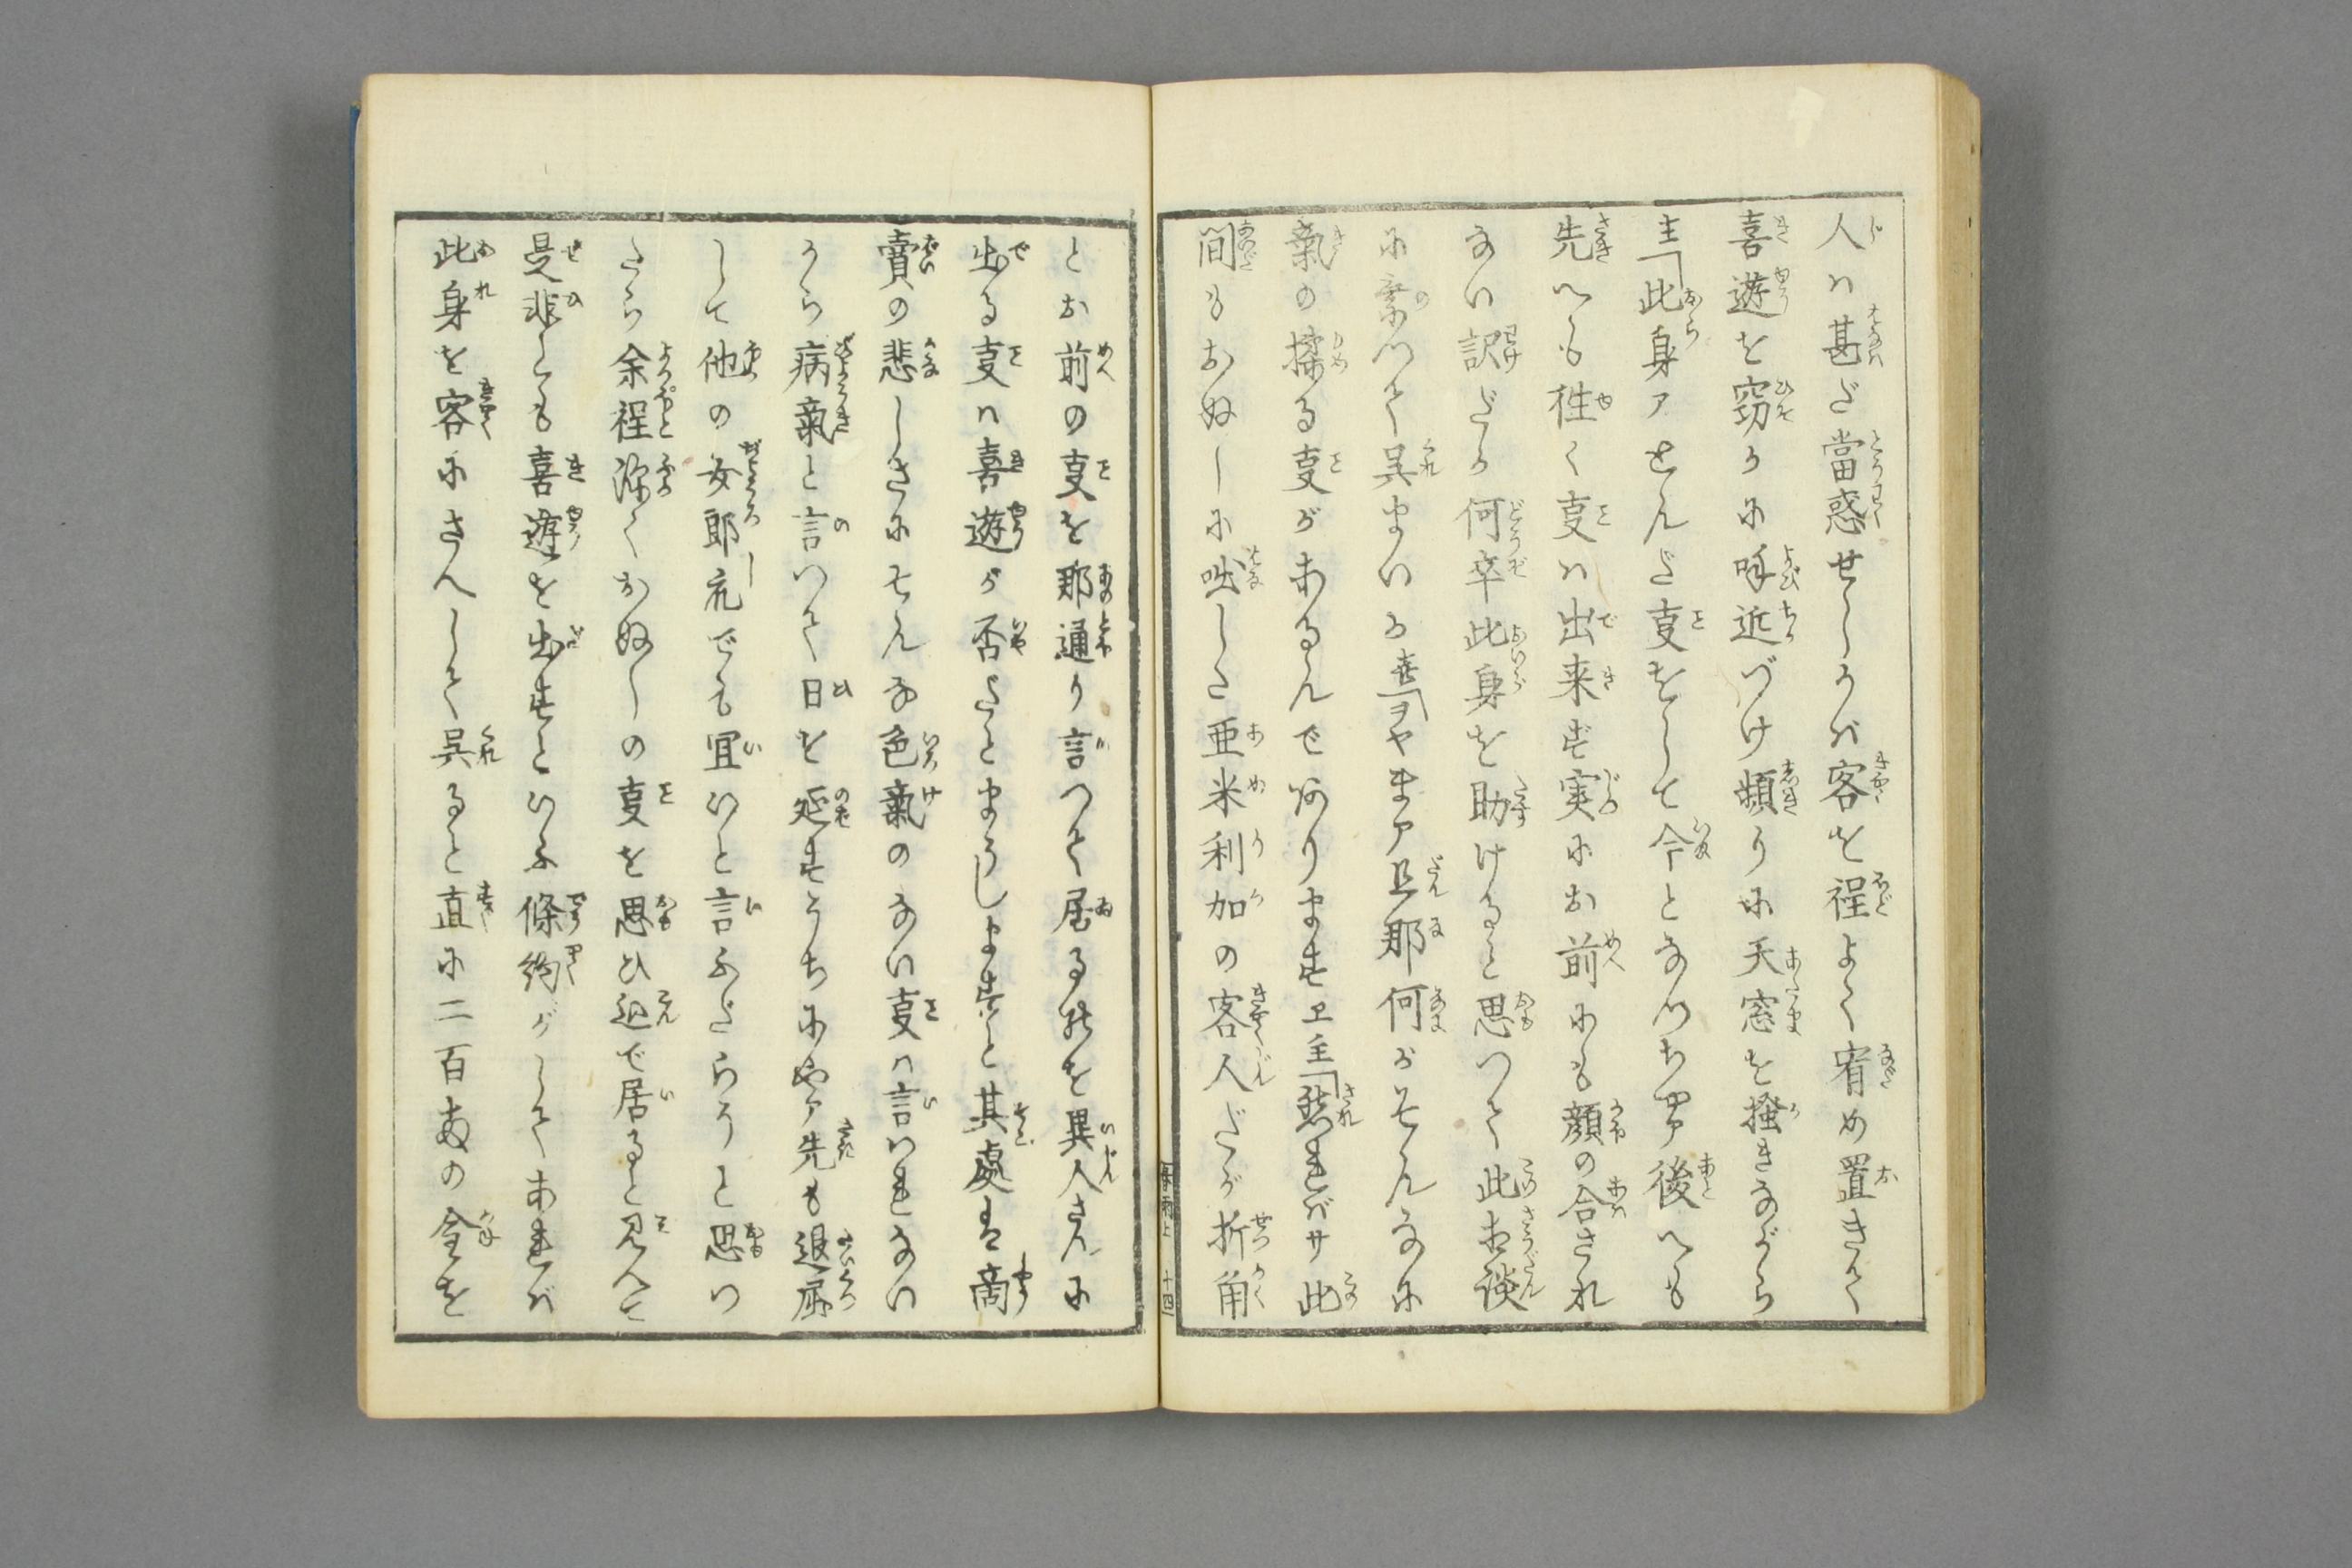 人ハ甚だ當惑せしかバ客を程よく宥め置きて
喜遊を窃かに呼近づけ頻りに天窓を掻きながら
主「此身アとんだ事をして今となつちやア後へも
先へも往く事ハ出来ず実にお前にも顔の合され
ない訳だが何卒此身を助けると思つて此相談
に乗つて呉まいか喜「ヲヤまア旦那何がそんなに
氣の揉る事があるんで何りますヱ主「然ればサ此
間もおぬしに咄しした亜米利加の客人だが折角
とお前の事を那通り言つて居る所を異人さんに
出る事ハ喜遊が否だとまうしますと其處は商
賣の悲しさにそんな色氣のない事ハ言ハれない
から病氣と言つて日を延すうちにやア先も退屈
して他の女郎衆でも宜いと言ふだらうと思つ
たら余程深くおぬしの事を思ひ込で居ると見へて
是非とも喜遊を出すといふ條約がしてあれバ
此身を客にさへして呉ると直に二百両の金を
春雨上 十四